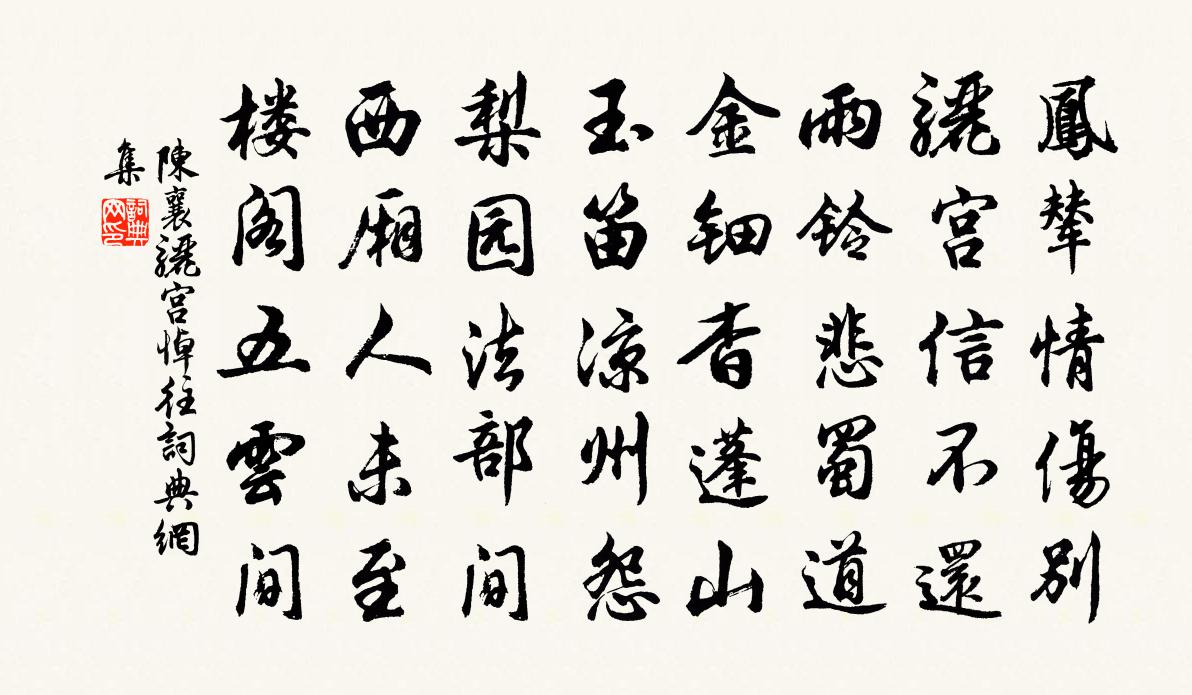 鳳輦情傷別
驪宮信不還
雨鈴悲蜀道
金鈿杳蓬山
玉笛涼州怨
梨园法部间
西廂人未至
楼阁五雲间
陳襄驪宮悼往詞典網
集
詞典
网印